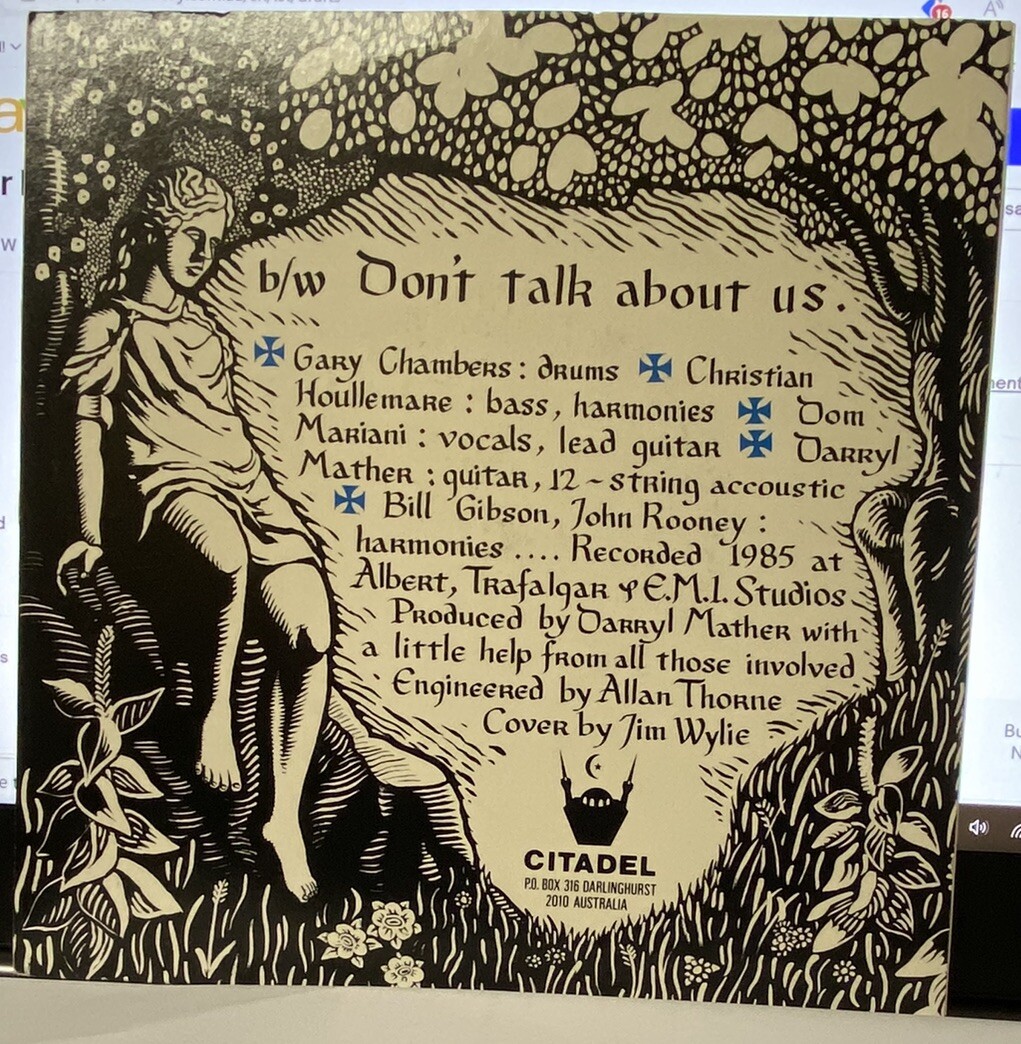 16
b/w Don't talk about us.
Gary Chambers: drums ✠ Christian
Houllemare: bass, harmonies ✠ Dom
Mariani: vocals, lead guitar ✠ Darryl
Mather: guitar, 12~string accoustic
✠ Bill Gibson, John Rooney:
harmonies .... Recorded 1985 at
Albert, Trafalgar & E.M.I. Studios
Produced by Darryl Mather with
a little help from all those involved
Engineered by Allan Thorne
Cover by Jim Wylie
CITADEL
P.O. BOX 316 DARLINGHURST
2010 AUSTRALIA